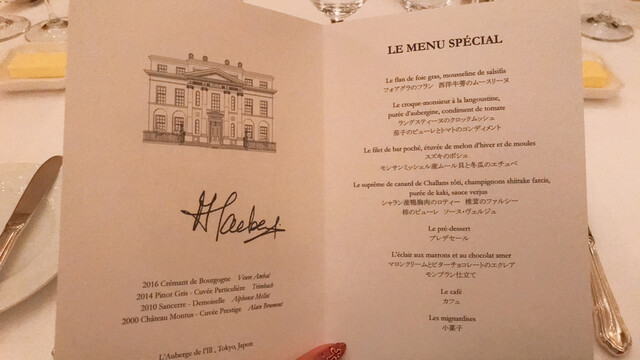 2016 Crémant de Bourgogne Veuve Ambal
2014 Pinot Gris - Cuvée Particulière Trimbach
2010 Sancerre - Demoiselle Alphonse Mellot
2000 Château Montus - Cuvée Prestige Alain Brumont
L'Auberge de l'Ill , Tokyo, Japon
LE MENU SPÉCIAL
Le flan de foie gras, mousseline de salsifis
フォアグラのフラン 西洋牛蒡のムースリーヌ
Le croque-monsieur à la langoustine,
purée d'aubergine, condiment de tomate
ラングスティーヌのクロックムッシュ
茄子のピューレとトマトのコンディメント
Le filet de bar poché, étuvée de melon d'hiver et de moules
スズキのポシェ
モンサンミッシェル産ムール貝と冬瓜のエチュベ
Le suprême de canard de Challans rôti, champignons shiitake farcis,
purée de kaki, sauce verjus
シャラン産鴨胸肉のロティー 椎茸のファルシー
柿のピューレ ソース・ヴェルジュ
Le pré-dessert
プレデセール
L'éclair aux marrons et au chocolat amer
マロンクリームとビターチョコレートのエクレア
モンブラン仕立て
Le café
カフェ
Les mignardises
小菓子